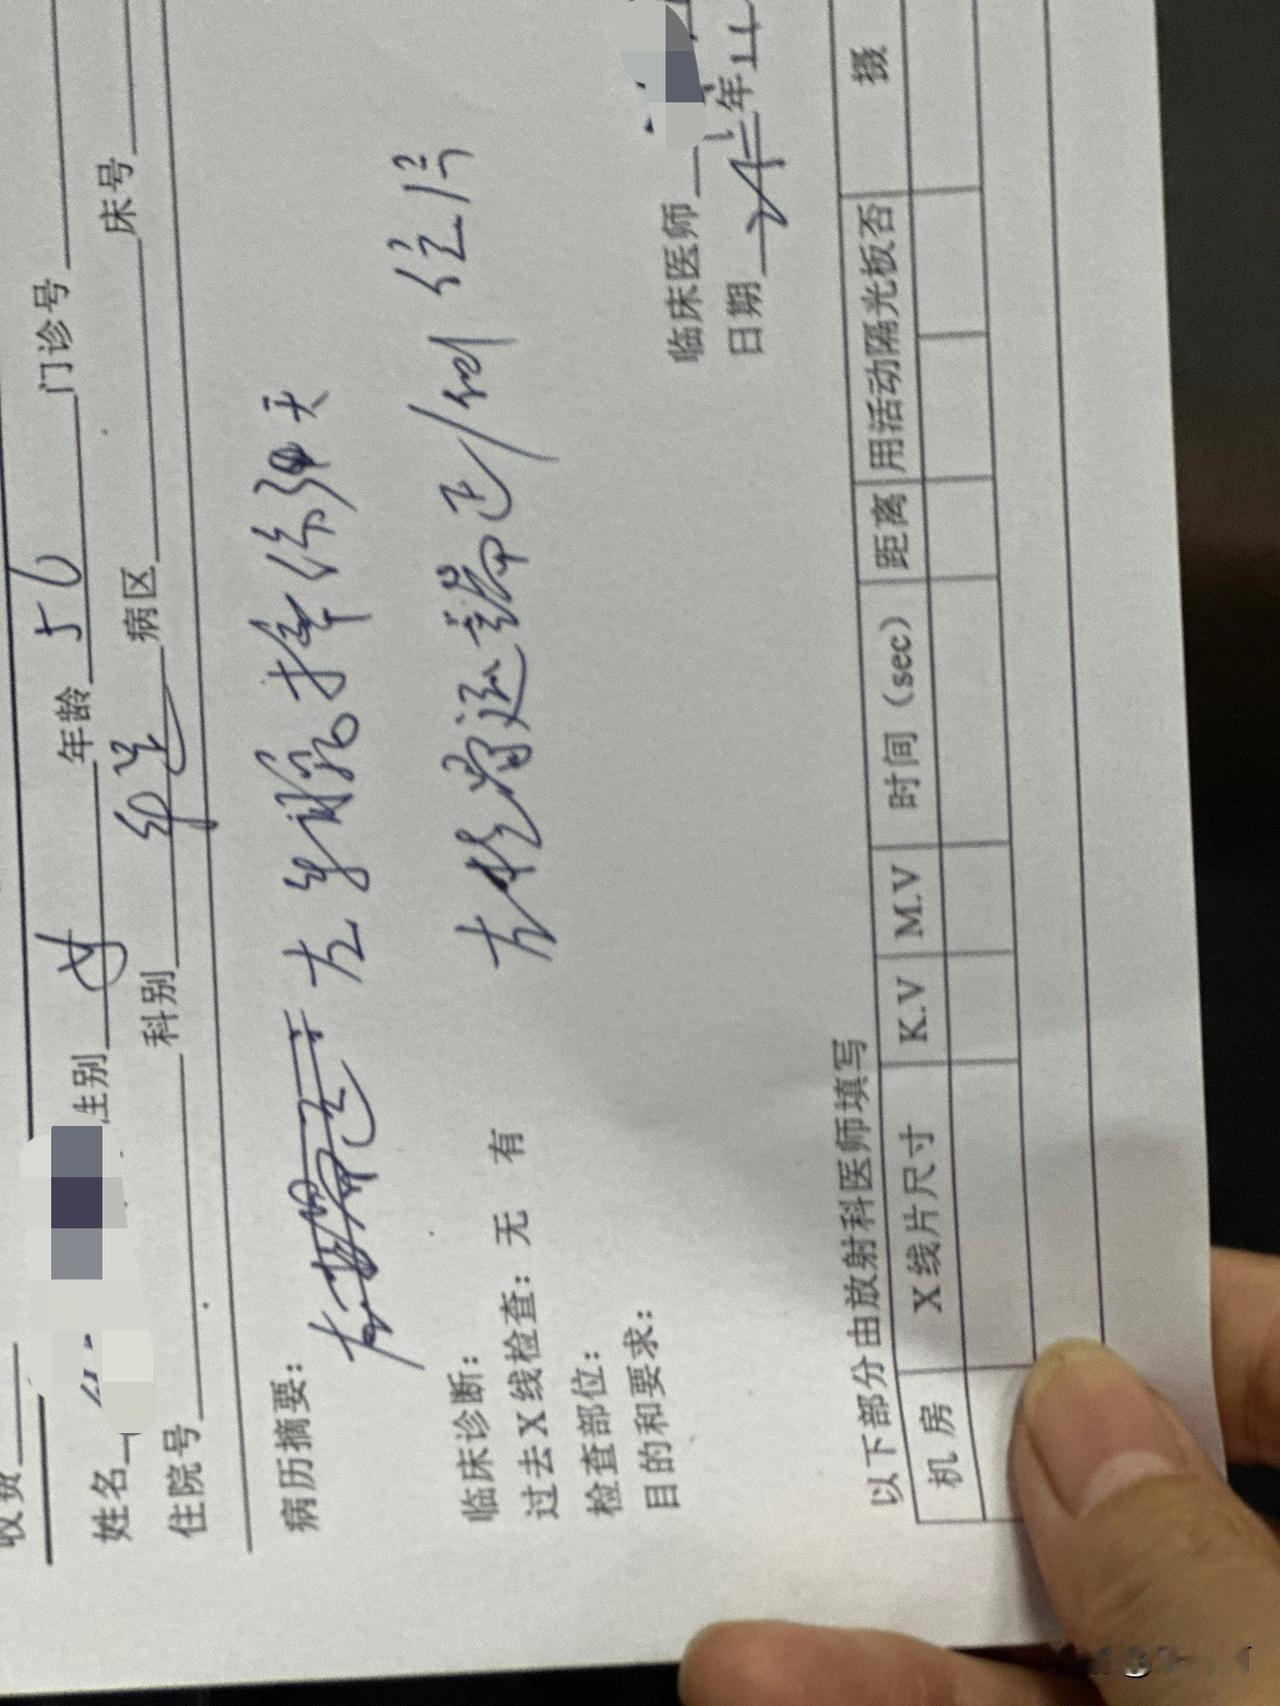 收费
姓名 性别 女 年龄 56 门诊号
住院号 科别 病区 床号
病历摘要： 左 摔伤 天
临床诊断： 左桡骨远端 正/侧 位片
过去X线检查：无 有
检查部位：
目的和要求：
临床医师
日期 年11
以下部分由放射科医师填写
机房 X线片尺寸 K.V M.V 时间（sec） 距离 用活动隔光板否 摄